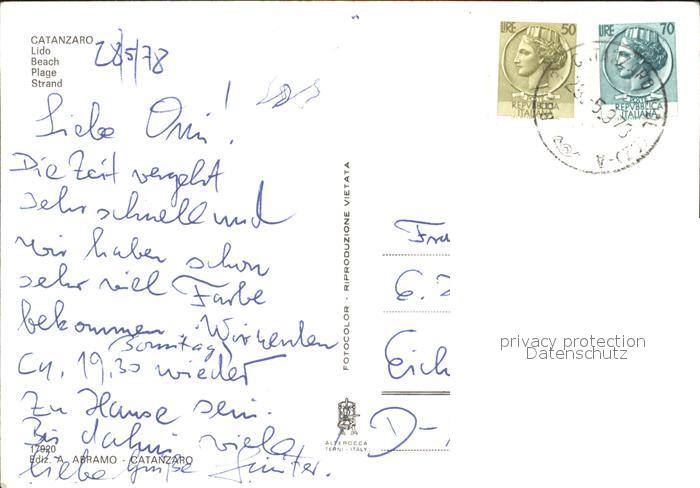 CATANZARO
Lido
Beach
Plage
Strand
28/5/78
Liebe Omi!
Die Zeit vergeht
sehr schnell und
wir haben schon
sehr viel Farbe
bekommen. Wir werden
Sonntag
ca. 19.30 wieder
zu Hause sein.
Bis dahin viele
liebe Grüße Günter.
17020
Ediz. A. ABRAMO - CATANZARO
FOTOCOLOR - RIPRODUZIONE VIETATA
ALTEROCCA
TERNI - ITALY
LIRE 50
POSTE
REPVBBLICA
ITALIANA
LIRE 70
POSTE
REPVBBLICA
ITALIANA
Eich
D-
privacy protection
Datenschutz